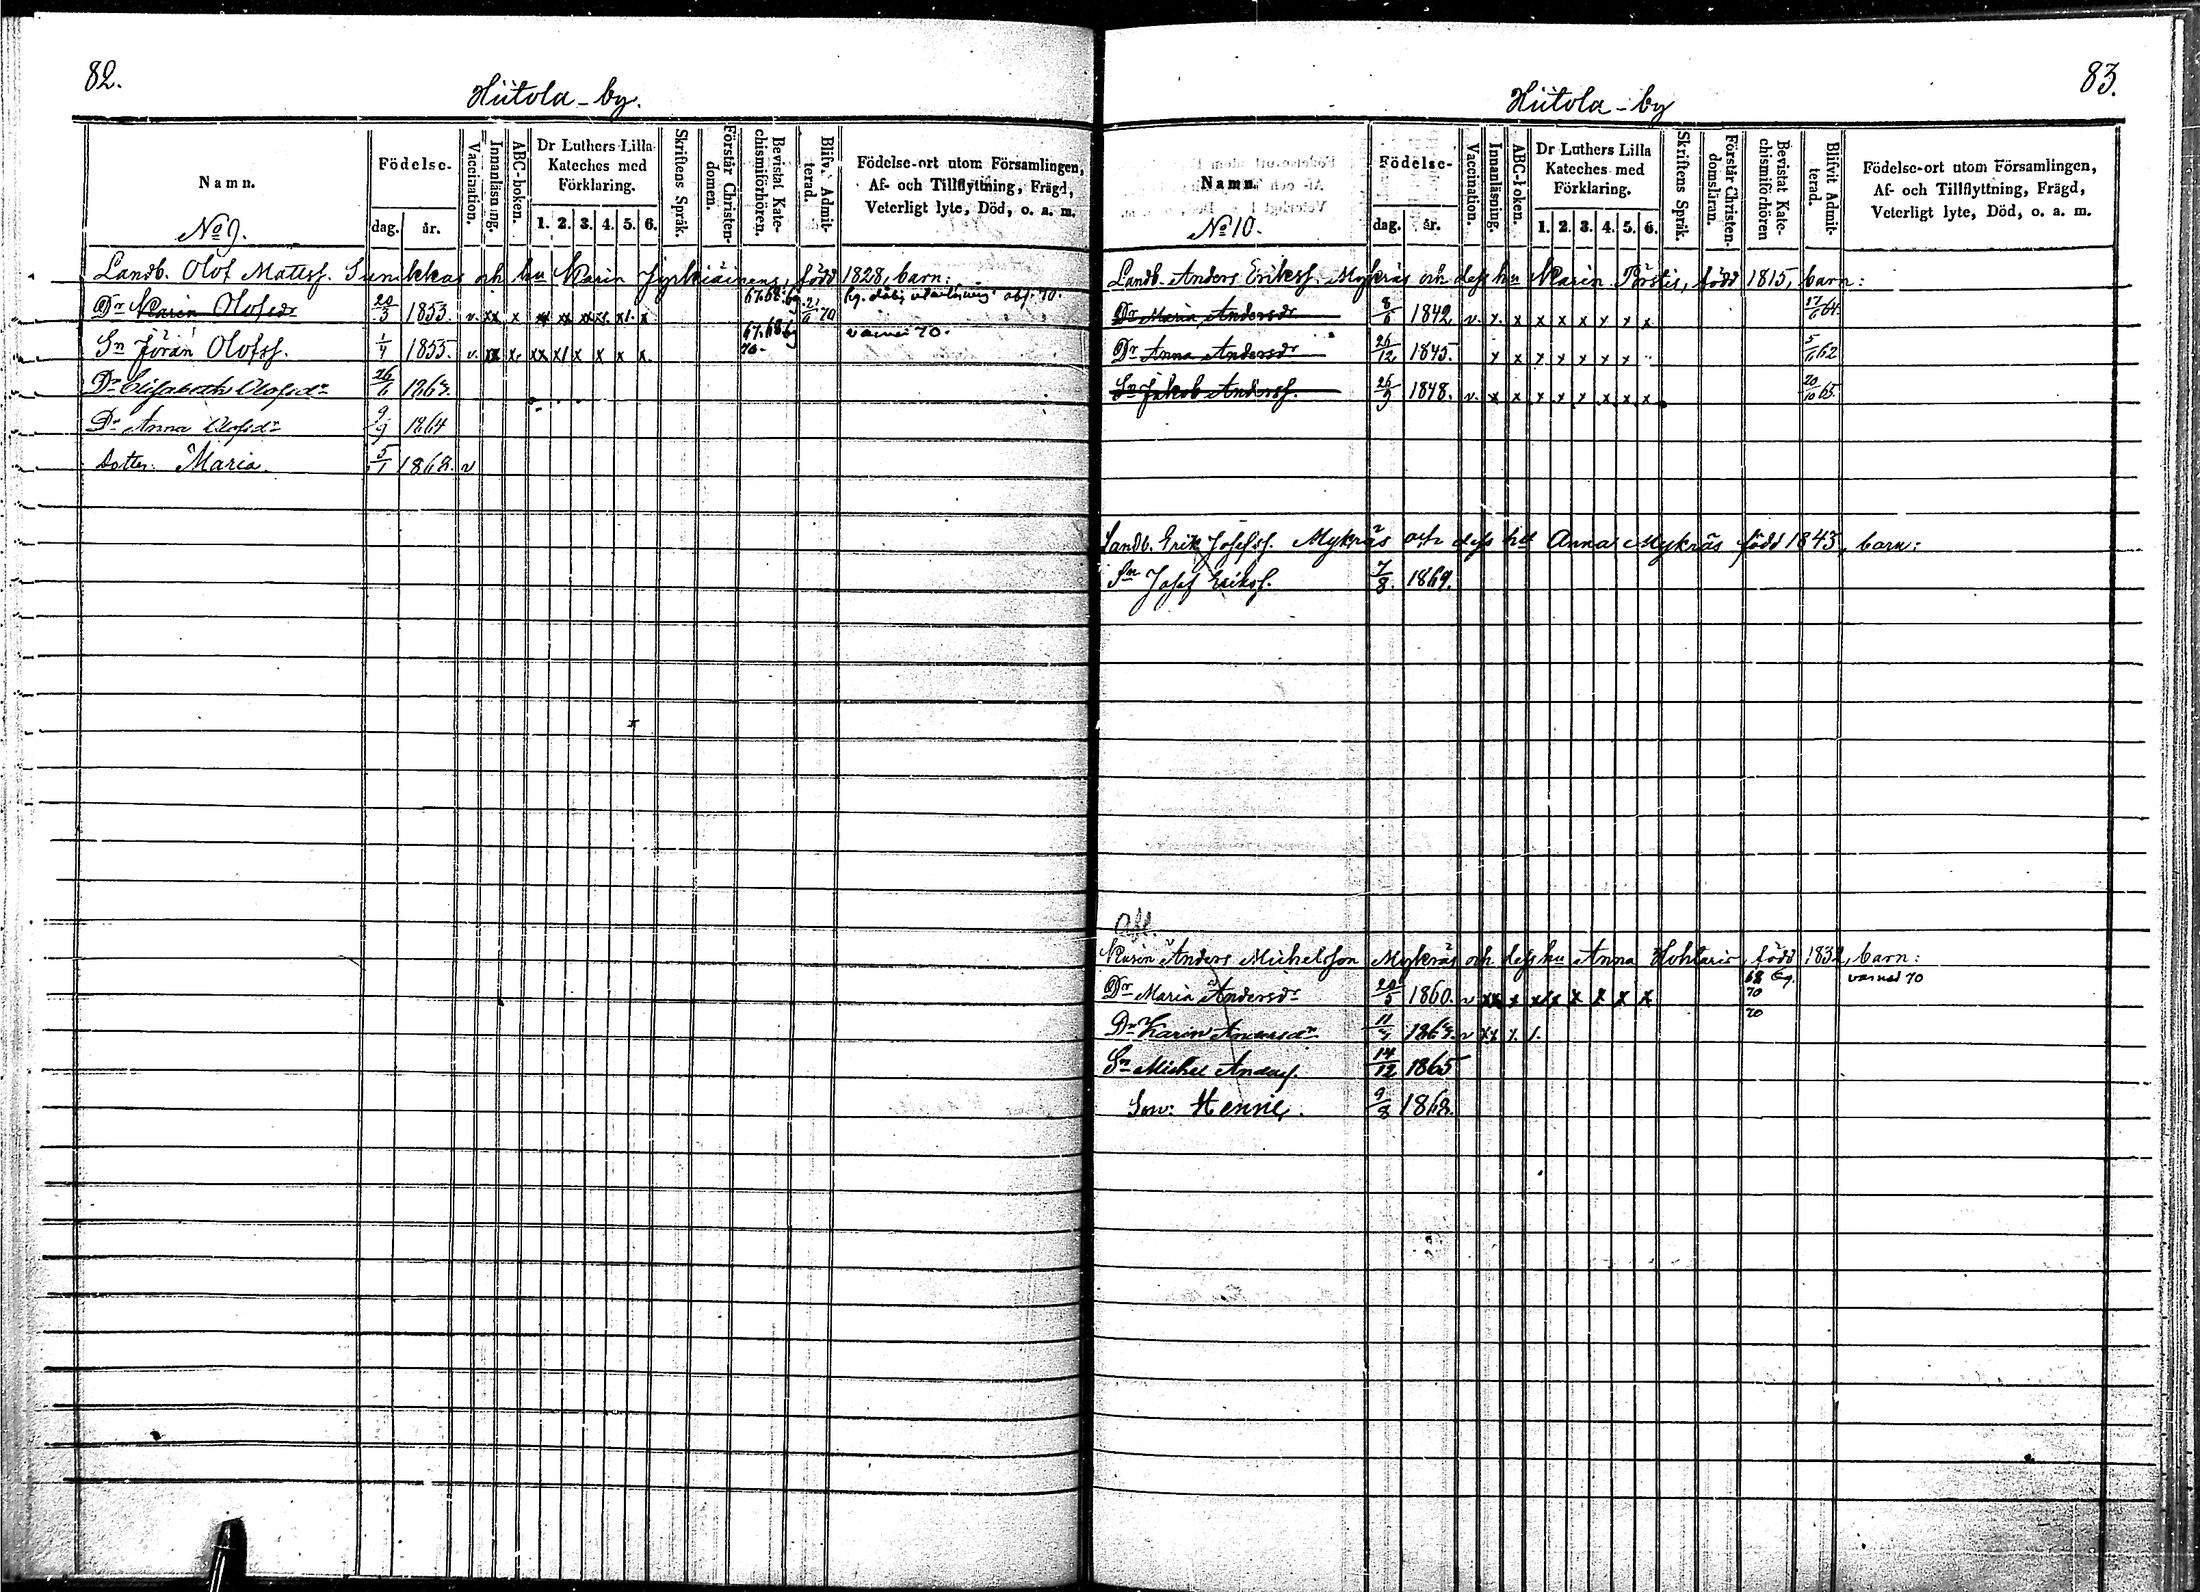 82.
Hiitola-by.
Namn.
No 9.
Födelse-
dag.
år.
Vaccination.
Innanläsning.
ABC-boken.
Dr Luthers Lilla
Kateches med
Förklaring.
1. 2. 3. 4. 5. 6.
Skriftens Språk.
Förstår Christen-
domen.
Bevistat Kate-
chismiförhören.
Blifvit Admit-
terad.
Födelse-ort utom Församlingen,
Af- och Tillflyttning, Frägd,
Veterligt lyte, Död, o. a. m.
Landb. Olof Mattss. Sunikkas och hu Karin Jyrkiäinens, född 1828, barn:
Dr Karin Olofsdr 20/3 1853. v. xx x 67. 68. 69 21/6 70
Sn Jöran Olofss. 1/7 1855. v. xx x. xx x/ x x x x. 67. 68. 69 70. varnad 70.
Dr Elisabeth Olofsdr 26/6 1862.
Dr Anna Olofsdr 9/9 1864
dotter: Maria. 5/1 1868. v
83.
Hiitola-by
Namn.
No 10.
Födelse-
dag.
år.
Vaccination.
Innanläsning.
ABC-boken.
Dr Luthers Lilla
Kateches med
Förklaring.
1. 2. 3. 4. 5. 6.
Skriftens Språk.
Förstår Christen-
domsläran.
Bevistat Kate-
chismiförhören
Blifvit Admit-
terad.
Födelse-ort utom Församlingen,
Af- och Tillflyttning, Frägd,
Veterligt lyte, Död, o. a. m.
Landb. Anders Erikss. Mykräs och dess hu Karin Pörstis, född 1815, barn:
Dr Maria Andersdr 8/6 1842 v. x. x x x x x x x 17/6 64.
Dr Anna Andersdr 26/12 1845. x x x x x x x 5/6 62
Sn Jakob Anderss. 26/9 1848. v. x x x x x x x x 20/10 65.
Landb. Erik Josefss. Mykräs och dess hu Anna Mykräs född 1843, barn:
Sn Josef Erikss. 7/8. 1869.
Anders Michelsson Mykräs och dess hu Anna Hohtaris, född 1832, barn:
Dr Maria Andersdr 20/5 1860. v xx x x/x x x x x 68 69. 70 varnad 70
Dr Karin Andersdr 11/4 1863. v xx x /. 70
Sn Michel Anderss. 14/12 1865
Son: Henric. 9/8 1868.